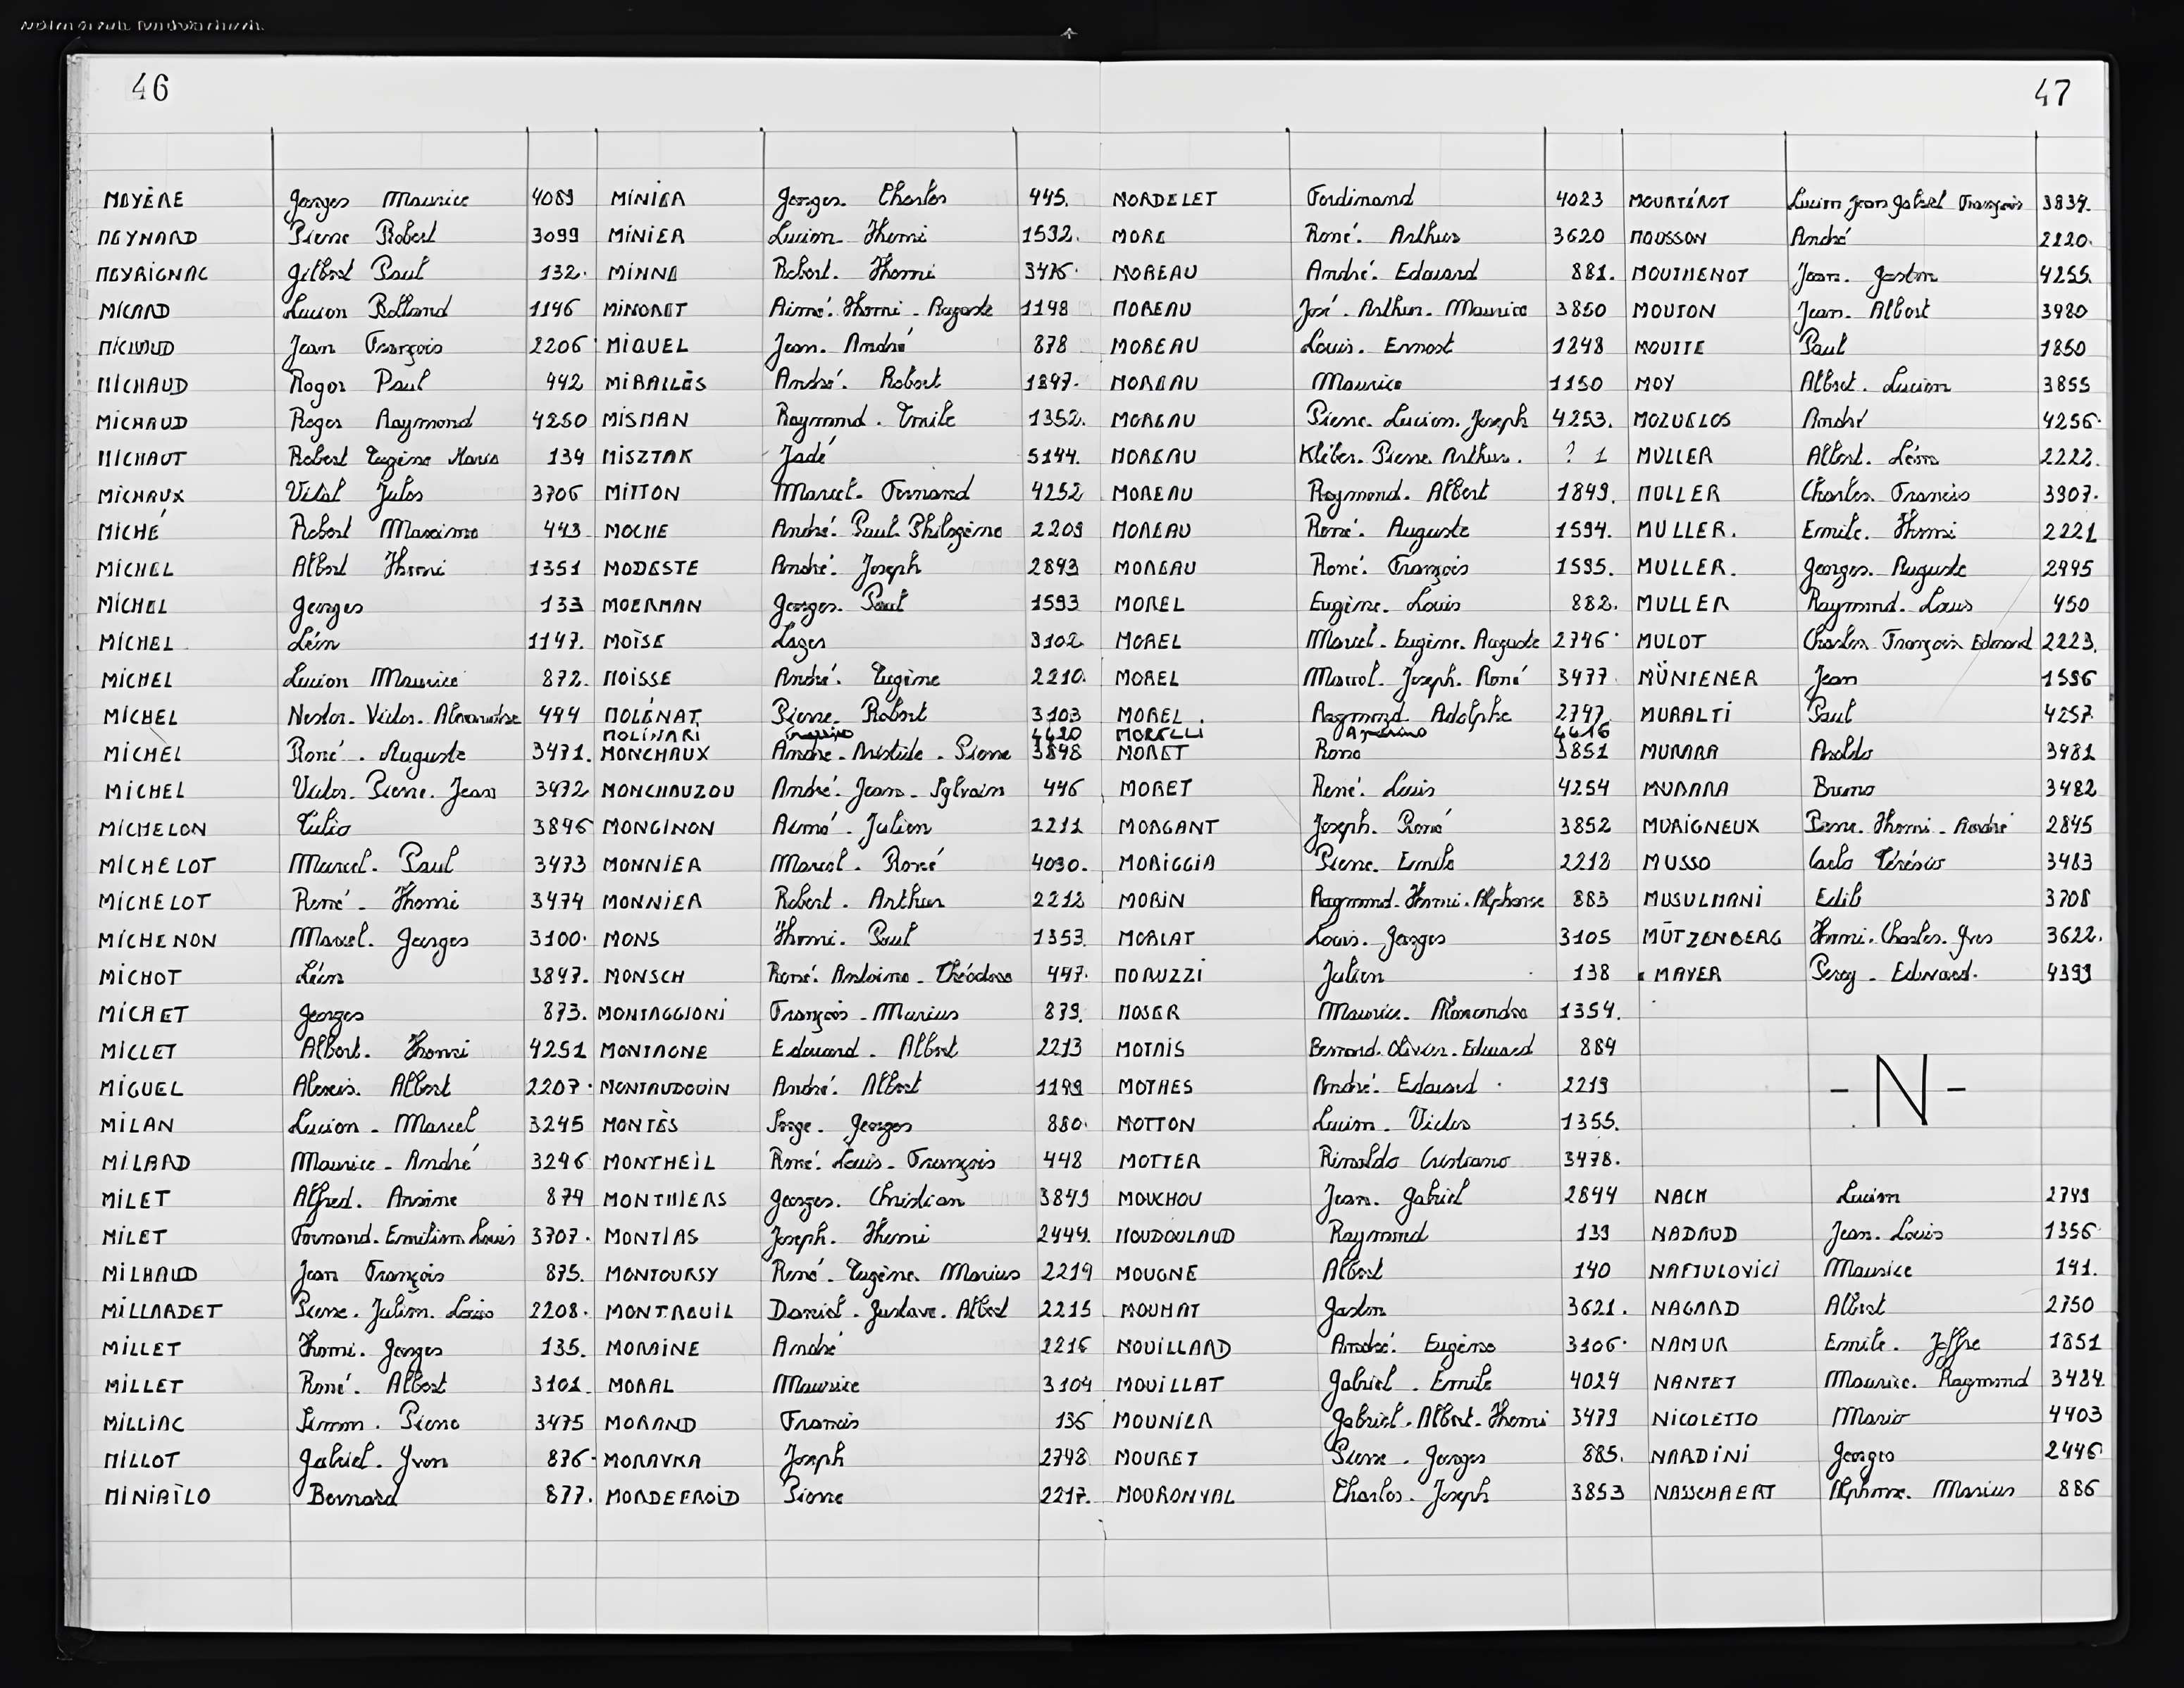 46
47
MEYÈRE Georges Maurice 4089
MEYNARD Pierre Robert 3099
MEYRIGNAC Gilbert Paul 132.
MICARD Lucien Rolland 1146
MICHAUD Jean François 2206
MICHAUD Roger Paul 442
MICHAUD Roger Raymond 4250
MICHAUT Robert Eugène Marie 134
MICHAUX Vital Jules 3706
MICHÉ Robert Maxime 443
MICHEL Albert Henri 1351
MICHEL Georges 133
MICHEL Léon 1147.
MICHEL Lucien Maurice 872.
MICHEL Nestor. Victor. Alexandre 444
MICHEL René. Auguste 3471.
MICHEL Victor. Pierre. Jean 3472
MICHELON Tulio 3846
MICHELOT Marcel. Paul 3473
MICHELOT René. Henri 3474
MICHENON Marcel. Georges 3100.
MICHOT Léon 3847.
MICRET Georges 873.
MICLET Albert. Henri 4251
MIGUEL Alexis. Albert 2207.
MILAN Lucien - Marcel 3245
MILARD Maurice - André 3246
MILET Alfred. Arsène 874
MILET Fernand. Emilien. Louis 3707.
MILHAUD Jean François 875.
MILLARDET Pierre. Julien. Louis 2208.
MILLET Henri. Georges 135.
MILLET René. Albert 3101.
MILLIAC Simon. Pierre 3475
MILLOT Gabriel. Yvon 876.
MINIAÏLO Bernard 877.
MINIER Georges. Charles 445.
MINIER Lucien Henri 1592.
MINNE Robert. Henri 3476.
MINORET Aimé. Henri - Auguste 1148
MIQUEL Jean. André 878
MIRALLÈS André. Robert 1847.
MISMAN Raymond. Emile 1352.
MISZTAK Jadé 5144.
MITTON Marcel. Fernand 4252
MOCHE André. Paul. Philogène 2209
MODESTE André. Joseph 2843
MOERMAN Georges. Paul 1593
MOÏSE Lazes 3102
MOISSE André. Eugène 2210.
MOLÉNAT Pierre. Robert 3103
MOLINARI 4420
MONCHAUX André. Aristide. Pierre 3848
MONCHAUZOU André. Jean - Sylvain 446
MONGINON Aimé. Julien 2211
MONNIER Marcel. René 4090.
MONNIER Robert. Arthur 2212
MONS Henri. Paul 1353.
MONSCH René. Antoine - Théodore 447.
MONTAGGIONI François - Marius 879.
MONTAGNE Edouard. Albert 2213
MONTAUDOUIN André. Albert 1149
MONTÈS Serge. Georges 880.
MONTHEIL René. Louis - François 448
MONTHIERS Georges. Christian 3849
MONTIAS Joseph. Henri 2444.
MONTOURSY René. Eugène. Marius 2214
MONTREUIL Daniel. Gustave. Albert 2215
MORAINE André 2216
MORAL Maurice 3104
MORAND Francis 136
MORAVKA Joseph 2748
MORDEFROID Pierre 2217.
MORDELET Ferdinand 4023
MORE René. Arthur 3620
MOREAU André. Edouard 881.
MOREAU José. Arthur. Maurice 3850
MOREAU Louis. Ernest 1848
MOREAU Maurice 1150
MOREAU Pierre. Lucien. Joseph 4253.
MOREAU Kléber. Pierre. Arthur. ? 1
MOREAU Raymond. Albert 1849.
MOREAU René. Auguste 1594.
MOREAU René. François 1595.
MOREL Eugène. Louis 882.
MOREL Marcel. Eugène. Auguste 2746.
MOREL Marcel. Joseph. René 3477
MOREL. Raymond Adolphe 2747.
MORELLI 4416
MORET Rene 3851
MORET René. Louis 4254
MORGANT Joseph. René 3852
MORIGGIA Pierre. Emile 2218
MORIN Raymond. Henri. Alphonse 883
MORLAT Louis. Georges 3105
MORUZZI Julien 138
MOSER Maurice. Alexandre 1354.
MOTAIS Bernard. Olivier. Edouard 884
MOTHES André. Edouard. 2219
MOTTON Lucien. Victor 1355.
MOTTER Rinaldo Cristiano 3478.
MOUCHOU Jean. Gabriel 2844
MOUDOULAUD Raymond 139
MOUGNE Albert 140
MOUHAT Gaston 3621.
MOUILLARD André. Eugène 3106.
MOUILLAT Gabriel. Emile 4024
MOUNIER Gabriel. Albert. Henri 3479
MOURET Pierre. Georges 885.
MOURONVAL Charles. Joseph 3853
MOURTÉROT Lucien Jean Gabriel François 3834.
MOUSSON André 2220.
MOUTHENOT Jean. Gaston 4255.
MOUTON Jean. Albert 3980
MOUTTE Paul 1850
MOY Albert. Lucien 3855
MOZUELOS André 4256.
MULLER Albert. Léon 2222.
MULLER Charles. Francis 3907.
MULLER. Emile. Henri 2221
MULLER. Georges. Auguste 2445
MULLER Raymond. Louis 450
MULOT Charles François Edmond 2223.
MÜNTENER Jean 1596
MURALTI Paul 4257.
MURARA Asoldo 3481
MURARA Bruno 3482
MURIGNEUX Pierre. Henri. André 2845
MUSSO Carlo Térésio 3483
MUSULMANI Edib 3708
MÜTZENBERG Henri. Charles. Yves 3622.
MAYER Percy - Edward. 4399
- N -
NACH Lucien 2749
NADAUD Jean. Louis 1356
NAFTULOVICI Maurice 141.
NAGARD Albert 2750
NAMUR Emile. Joffre 1851
NANTET Maurice. Raymond 3484.
NICOLETTO Mario 4403
NARDINI Georges 2446
NASSCHAERT Alphonse. Marius 886